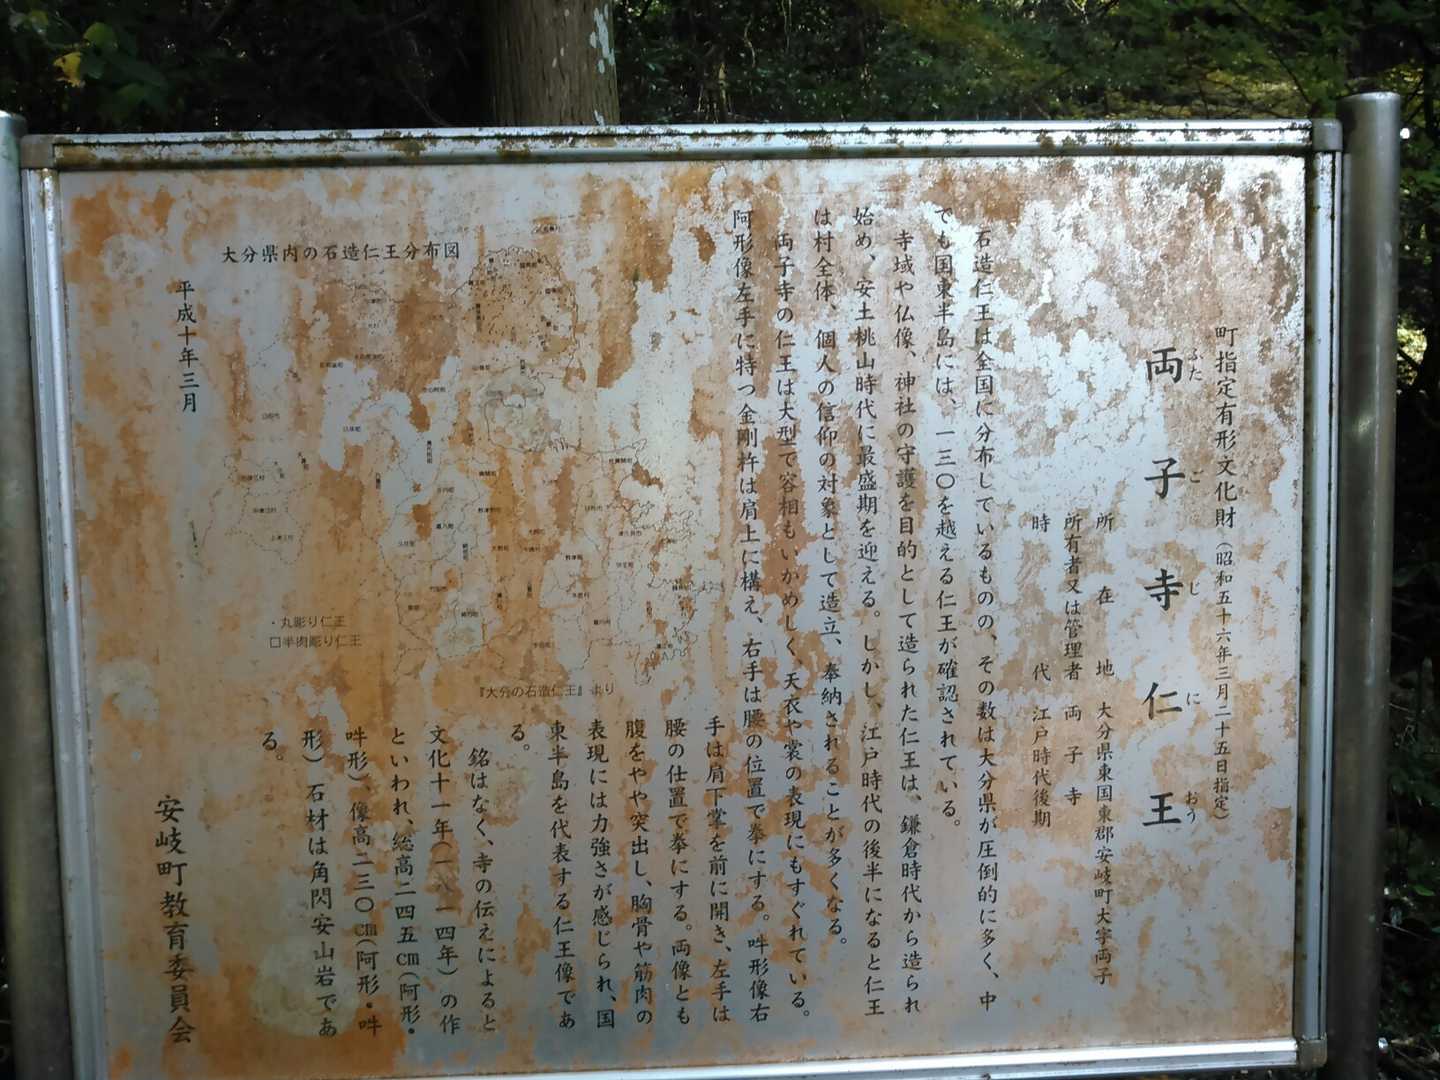 町指定有形文化財（昭和五十六年三月二十五日指定）
両子寺仁王
ふたごじにおう
所在地 大分県東国東郡安岐町大字両子
所有者又は管理者 両子寺
時代 江戸時代後期
石造仁王は全国に分布しているものの、その数は大分県が圧倒的に多く、中
でも国東半島には、一三〇を越える仁王が確認されている。
寺域や仏像、神社の守護を目的として造られた仁王は、鎌倉時代から造られ
始め、安土桃山時代に最盛期を迎える。しかし、江戸時代の後半になると仁王
は村全体、個人の信仰の対象として造立、奉納されることが多くなる。
両子寺の仁王は大型で容相もいかめしく、天衣や裳の表現にもすぐれている。
阿形像左手に特つ金剛杵は肩上に構え、右手は腰の位置で拳にする。吽形像右
手は肩下掌を前に開き、左手は
腰の仕置で拳にする。両像とも
腹をやや突出し、胸骨や筋肉の
表現には力強さが感じられ、国
東半島を代表する仁王像であ
る。
銘はなく、寺の伝えによると
文化十一年（一八一四年）の作
といわれ、総高二四五㎝（阿形・
吽形）、像高二三〇㎝（阿形・吽
形）石材は角閃安山岩であ
る。
大分県内の石造仁王分布図
・丸彫り仁王
□半肉彫り仁王
『大分の石造仁王』より
平成十年三月
安岐町教育委員会